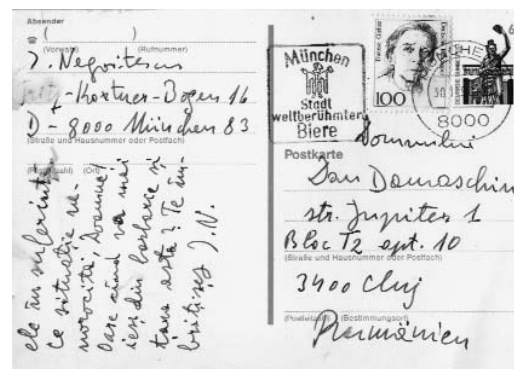 Absender
( )
(Vorwahl) (Rufnummer)
I. Negoițescu
-Kortner-Bogen 16
D - 8000 München 83
(Straße und Hausnummer oder Postfach)
(Postleitzahl) (Ort)
ele în suferință
ce situație ne-
norocită, Doamne!
Oare când va mai
ieși din barbarie și
țara asta? Te îm-
brățișez I.N.
München
Stadt
weltberühmter
Biere
100
8000
Postkarte
Domnului
Dan Damaschin
str. Jupiter 1
Bloc T2 apt. 10
(Straße und Hausnummer oder Postfach)
3400 Cluj
(Postleitzahl) (Bestimmungsort)
Rumänien